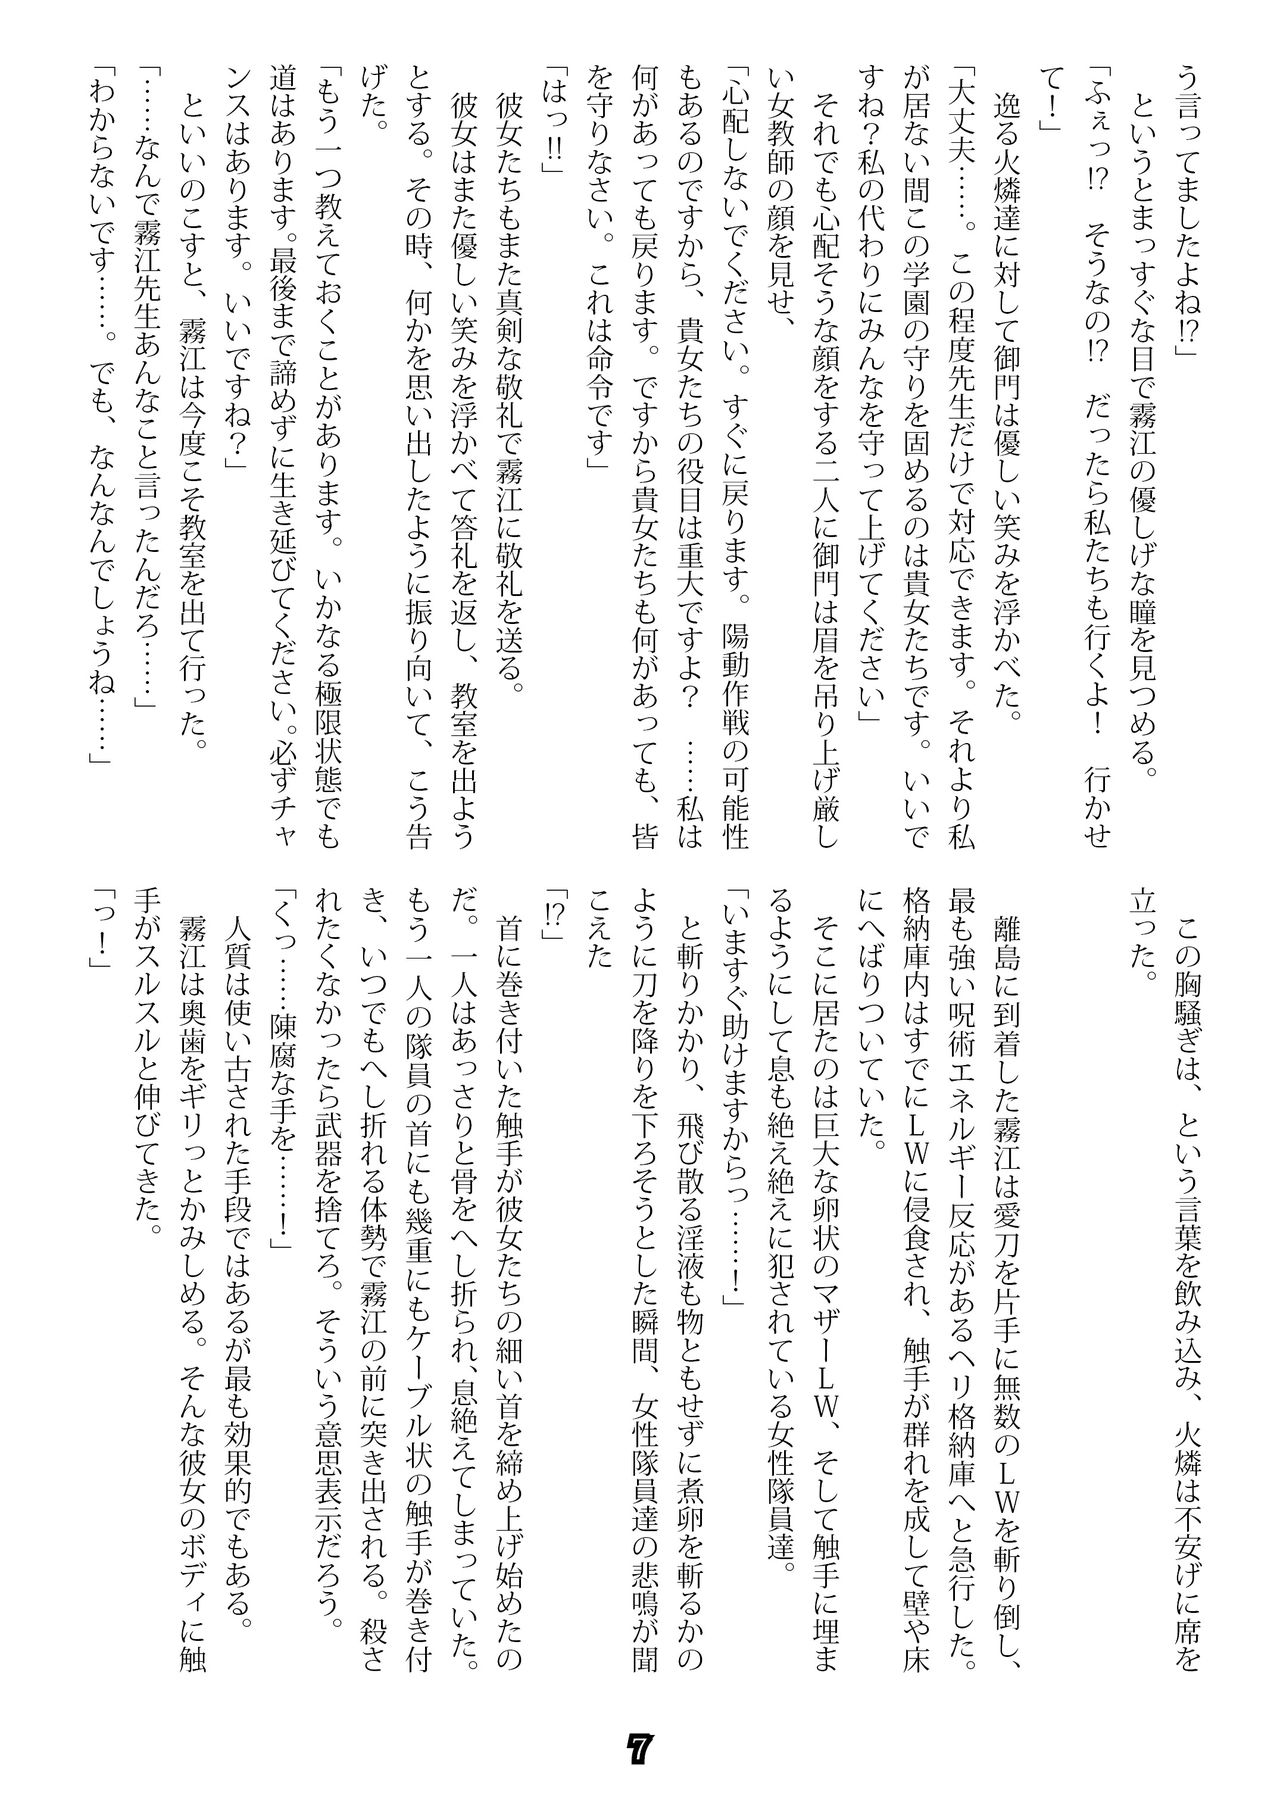 う言ってましたよね!?」
というとまっすぐな目で霧江の優しげな瞳を見つめる。
「ふぇっ!?　そうなの!?　だったら私たちも行くよ！　行かせ
て！」
逸る火燐達に対して御門は優しい笑みを浮かべた。
「大丈夫……。この程度先生だけで対応できます。それより私
が居ない間この学園の守りを固めるのは貴女たちです。いいで
すね？私の代わりにみんなを守って上げてください」
それでも心配そうな顔をする二人に御門は眉を吊り上げ厳し
い女教師の顔を見せ、
「心配しないでください。すぐに戻ります。陽動作戦の可能性
もあるのですから、貴女たちの役目は重大ですよ？　……私は
何があっても戻ります。ですから貴女たちも何があっても、皆
を守りなさい。これは命令です」
「はっ!!」
彼女たちもまた真剣な敬礼で霧江に敬礼を送る。
彼女はまた優しい笑みを浮かべて答礼を返し、教室を出よう
とする。その時、何かを思い出したように振り向いて、こう告
げた。
「もう一つ教えておくことがあります。いかなる極限状態でも
道はあります。最後まで諦めずに生き延びてください。必ずチャ
ンスはあります。いいですね？」
といいのこすと、霧江は今度こそ教室を出て行った。
「……なんで霧江先生あんなこと言ったんだろ……」
「わからないです……。でも、なんなんでしょうね……」
この胸騒ぎは、という言葉を飲み込み、火燐は不安げに席を
立った。
離島に到着した霧江は愛刀を片手に無数のＬＷを斬り倒し、
最も強い呪術エネルギー反応があるヘリ格納庫へと急行した。
格納庫内はすでにＬＷに侵食され、触手が群れを成して壁や床
にへばりついていた。
そこに居たのは巨大な卵状のマザーＬＷ、そして触手に埋ま
るようにして息も絶え絶えに犯されている女性隊員達。
「いますぐ助けますからっ……！」
と斬りかかり、飛び散る淫液も物ともせずに煮卵を斬るかの
ように刀を降りを下ろそうとした瞬間、女性隊員達の悲鳴が聞
こえた
「!?」
首に巻き付いた触手が彼女たちの細い首を締め上げ始めたの
だ。一人はあっさりと骨をへし折られ、息絶えてしまっていた。
もう一人の隊員の首にも幾重にもケーブル状の触手が巻き付
き、いつでもへし折れる体勢で霧江の前に突き出される。殺さ
れたくなかったら武器を捨てろ。そういう意思表示だろう。
「くっ……陳腐な手を……！」
人質は使い古された手段ではあるが最も効果的でもある。
霧江は奥歯をギリっとかみしめる。そんな彼女のボディに触
手がスルスルと伸びてきた。
「っ！」
7